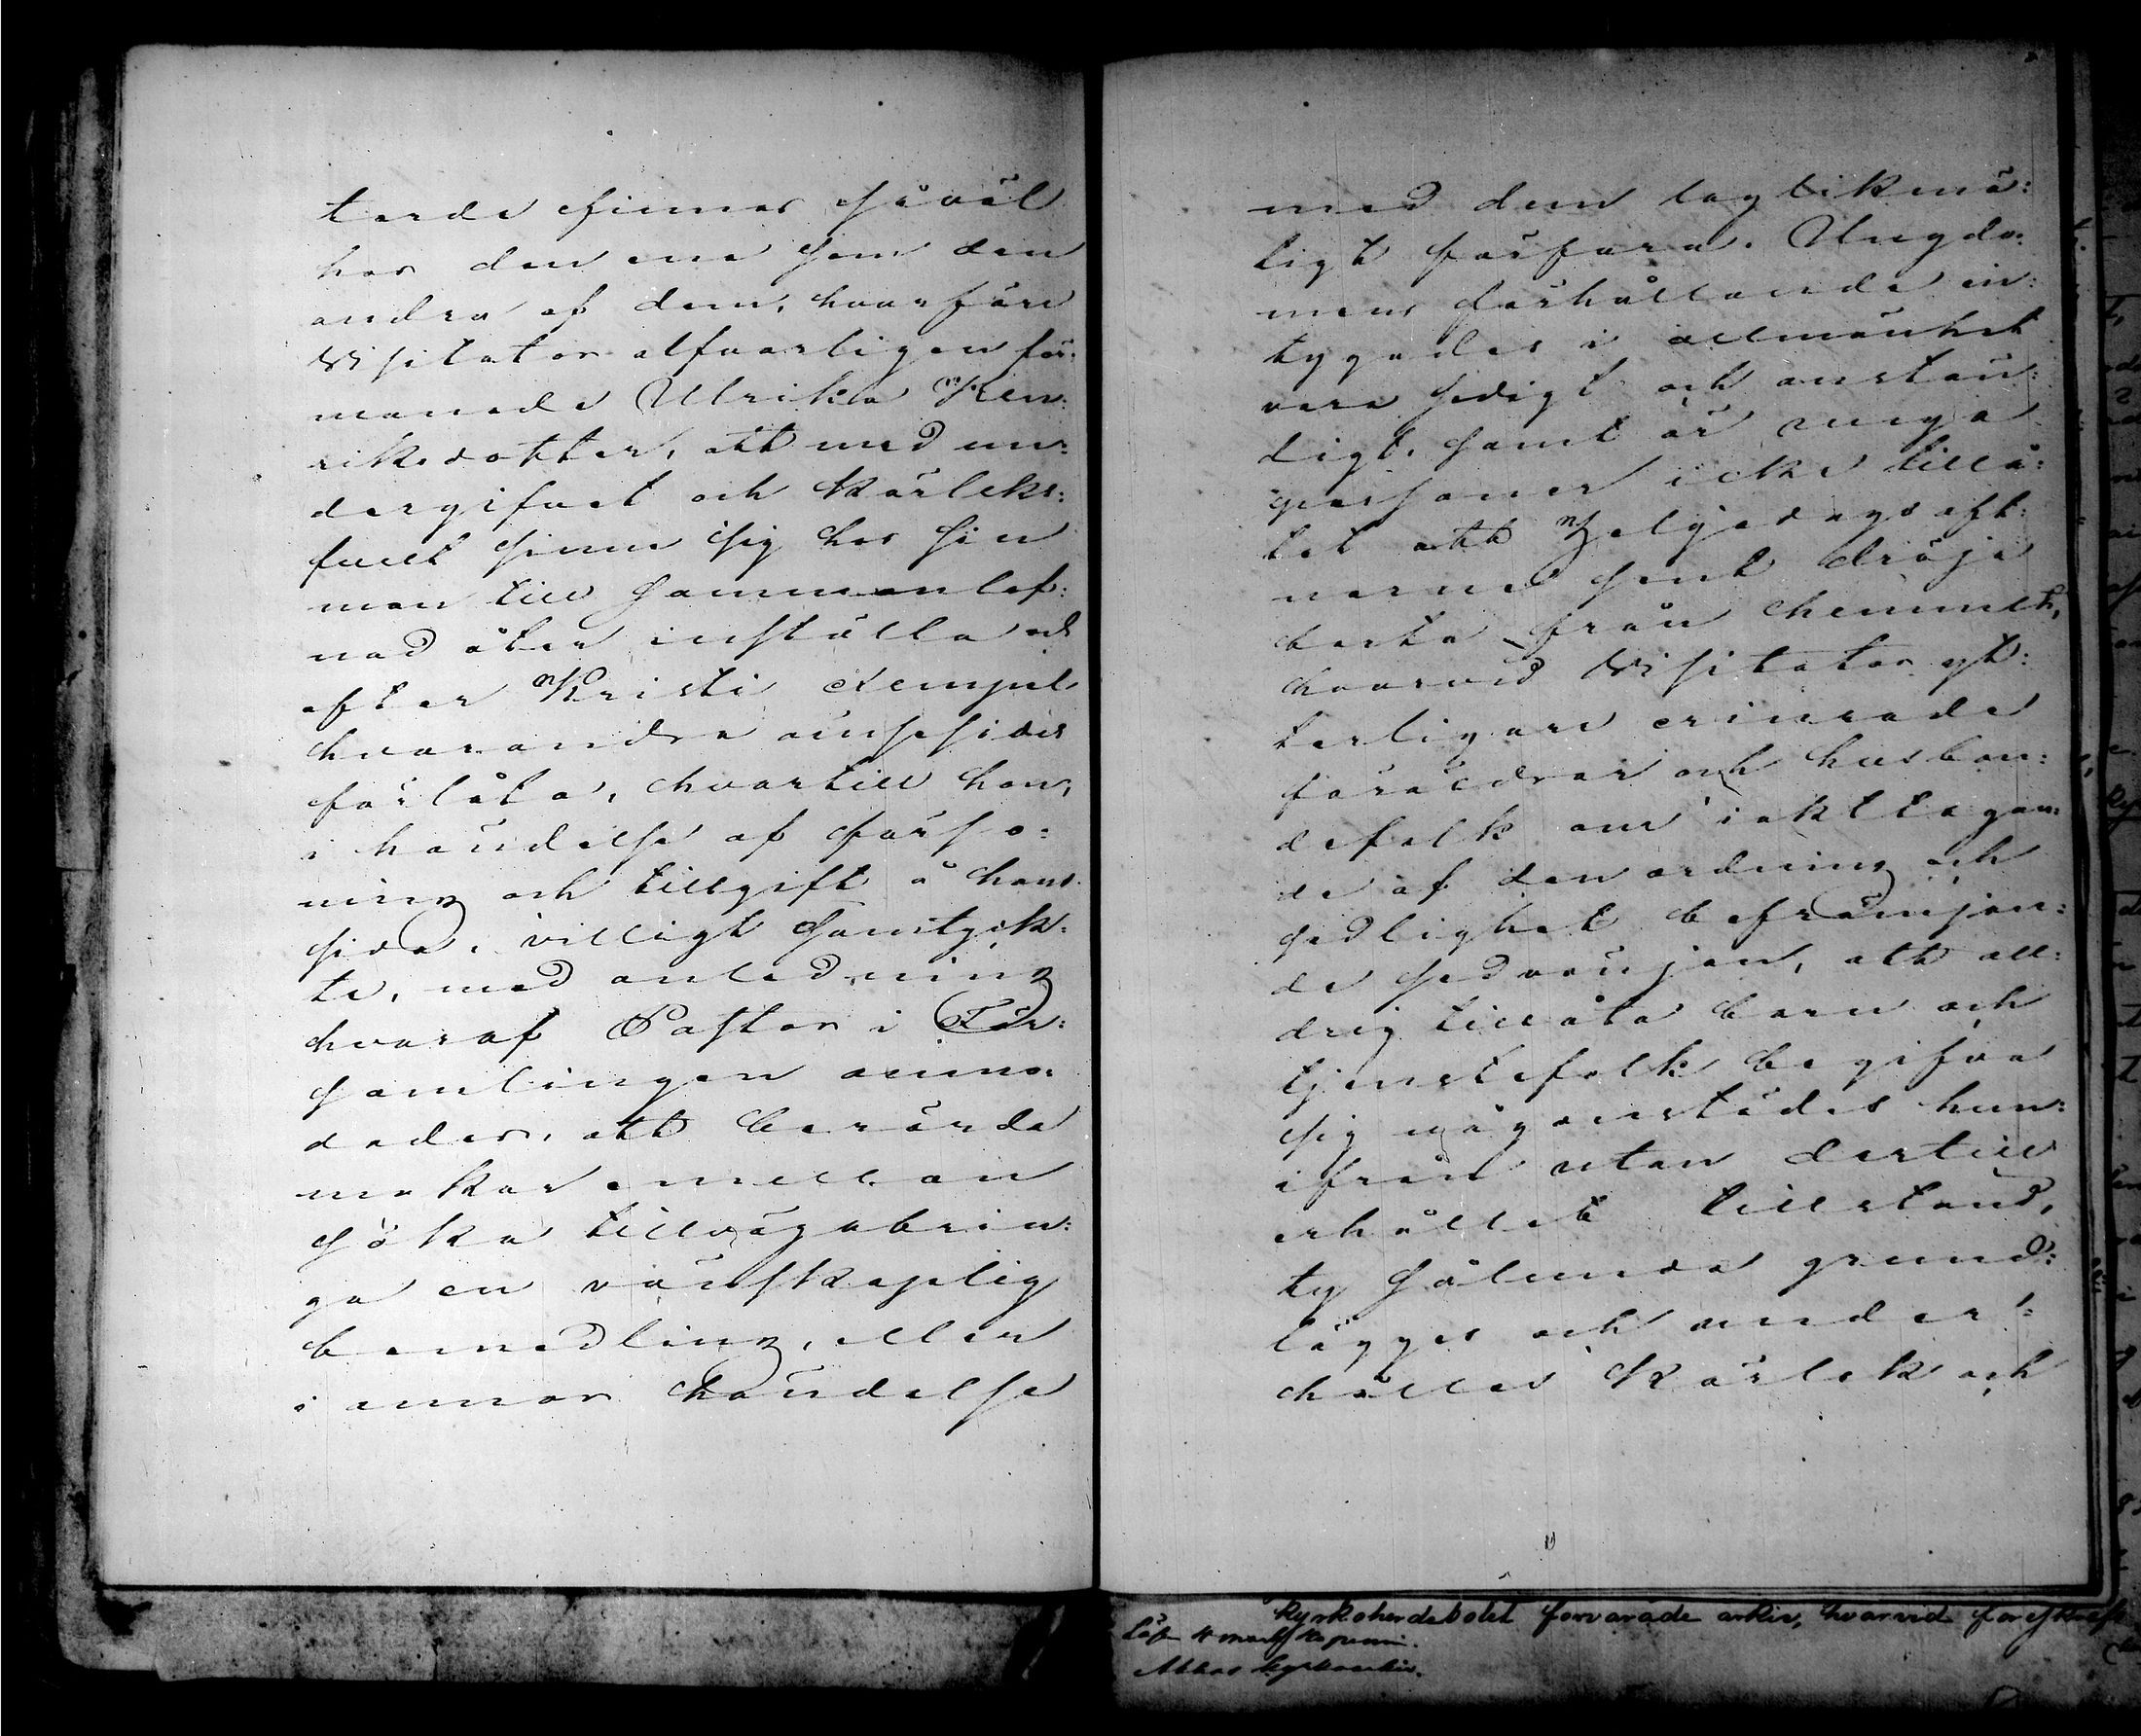 tarde finnas såväl
hos den ena som den
andra af dem, hvarföre
Visitator alfvarligen för:
manade Ulrika Hen:
riksdotter, att med un:
dergifvet och kärleks:
fullt sinne sig hos sin
man till sammanlef:
nad åter inställa och
efter Kristi exempel
hvarandra ömsesides
förlåta, hvartill hon,
i händelse af förso:
ning och tillgift å hans
sida, villigt samtyck:
te, med anledning
hvaraf Pastor i För:
samlingen anmo:
dades, att berörde
makar emellan
söka tillvägabrin:
ga en vänskaplig
bemedling, eller
i annor händelse
med dem laglikmä:
ligt förfara. Ungdo:
mens förhållande in:
tygades i allmänhet
vara sedigt och anstän:
digt, samt är unga
personer icke tillå:
tet att helgedagsaft:
narne sent dröja
borta från hemmet,
hvarvid Visitator yt:
terligare erinrade
föräldrar och husbon:
defolk om iakttagan:
de af den ordning och
sedlighet befrämjan:
de sedvänjan, att all:
drig tillåta barn och
tjenstefolk begifva
sig någorstädes hem:
ifrån utan dertill
erhållet tillstånd,
ty sålunda grund:
lägges och under:
hålles kärlek och
kyrkoherdebolet förvarade arkiv, hvarvid
kyrkoarkiv.